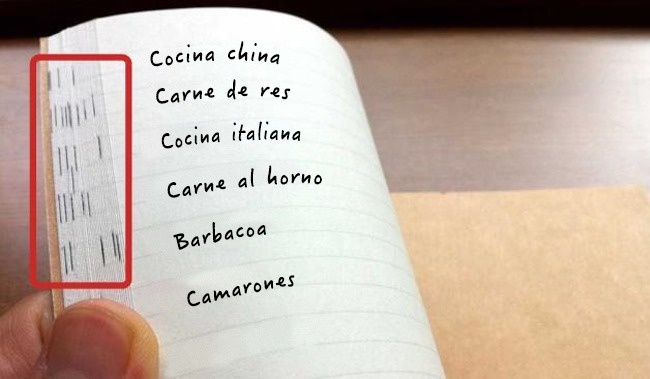 Cocina china
Carne de res
Cocina italiana
Carne al horno
Barbacoa
Camarones